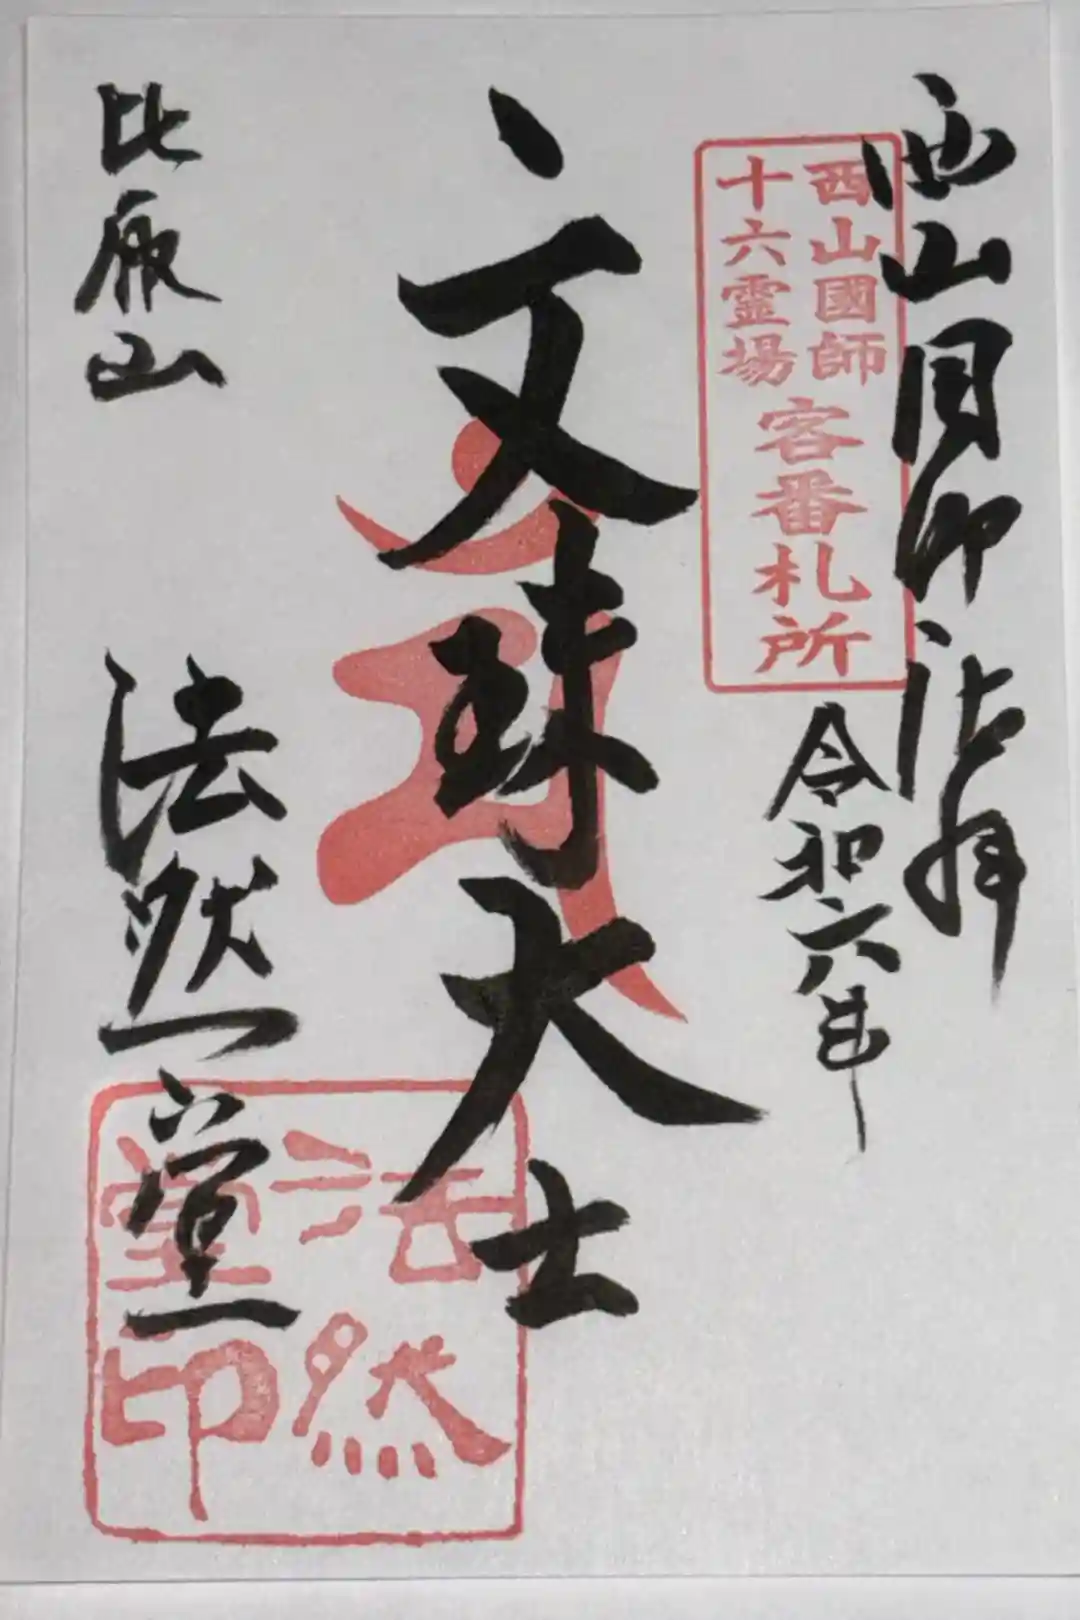 西山国師拝
西山國師
十六霊場
客番札所
令和六年
文殊大士
比叡山 法然堂
法然
堂印